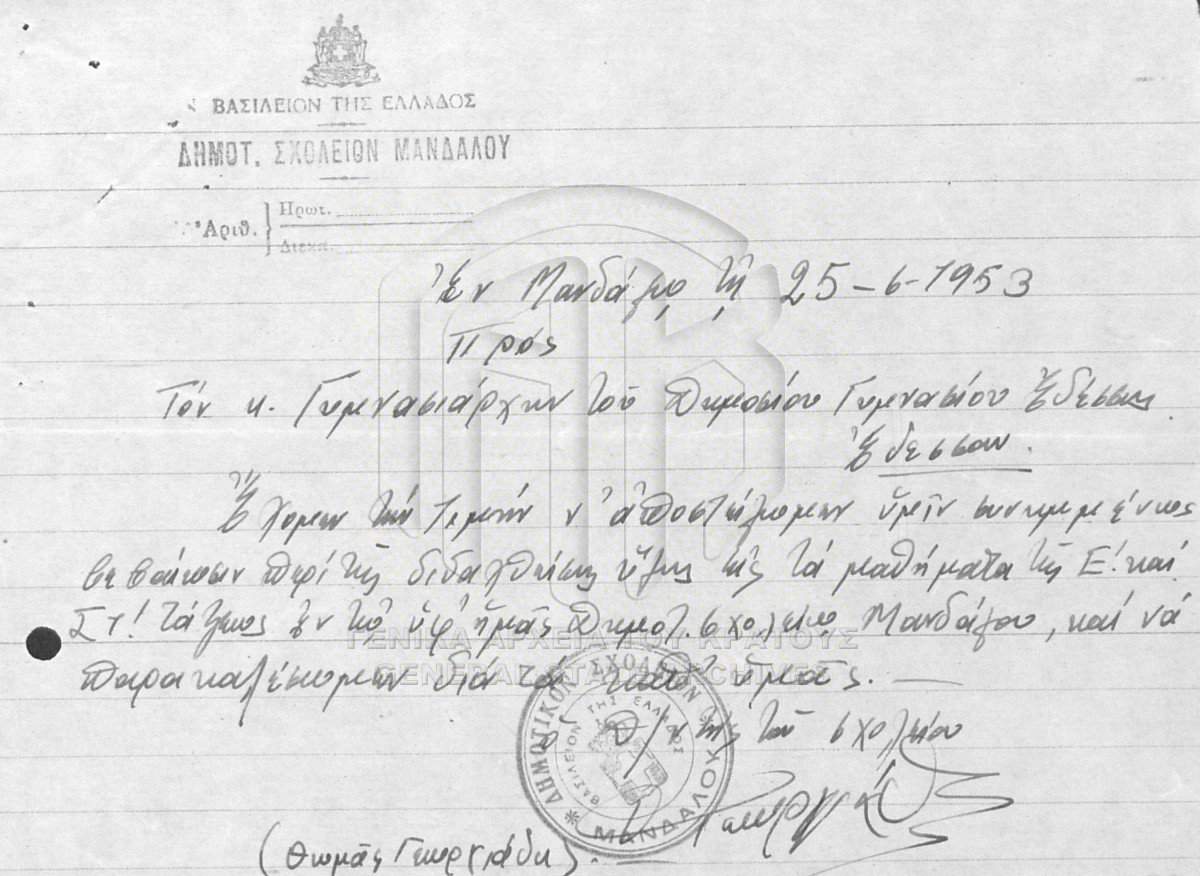 ΒΑΣΙΛΕΙΟΝ ΤΗΣ ΕΛΛΑΔΟΣ
ΔΗΜΟΤ. ΣΧΟΛΕΙΟΝ ΜΑΝΔΑΛΟΥ
Ἀριθ. Πρωτ.
Διεκπ.
Ἐν Μανδάλῳ τῇ 25-6-1953
Πρός
Τόν κ. Γυμνασιάρχην τοῦ Δημοσίου Γυμνασίου Ἐδέσσης
Ἔδεσσαν.
Ἔχομεν τήν τιμήν ν' ἀποστείλωμεν ὑμῖν συνημμένως
βεβαίωσιν περί τῆς διδαχθείσης ὕλης εἰς τά μαθήματα τῆς Ε! καί
Στ! τάξεως ἐν τῷ ὑφ' ἡμᾶς Δημοτ. σχολείῳ Μανδάλου, καί νά
παρακαλέσωμεν διά τά καθ' ὑμᾶς.
ὁ Δ/ντής τοῦ σχολείου
(Θωμᾶς Γεωργιάδης)
ΔΗΜΟΤΙΚΟΝ ΣΧΟΛΕΙΟΝ ΜΑΝΔΑΛΟΥ
ΒΑΣΙΛΕΙΟΝ ΤΗΣ ΕΛΛΑΔΟΣ
ΓΕΝΙΚΑ ΑΡΧΕΙΑ ΤΟΥ ΚΡΑΤΟΥΣ
GENERAL STATE ARCHIVES